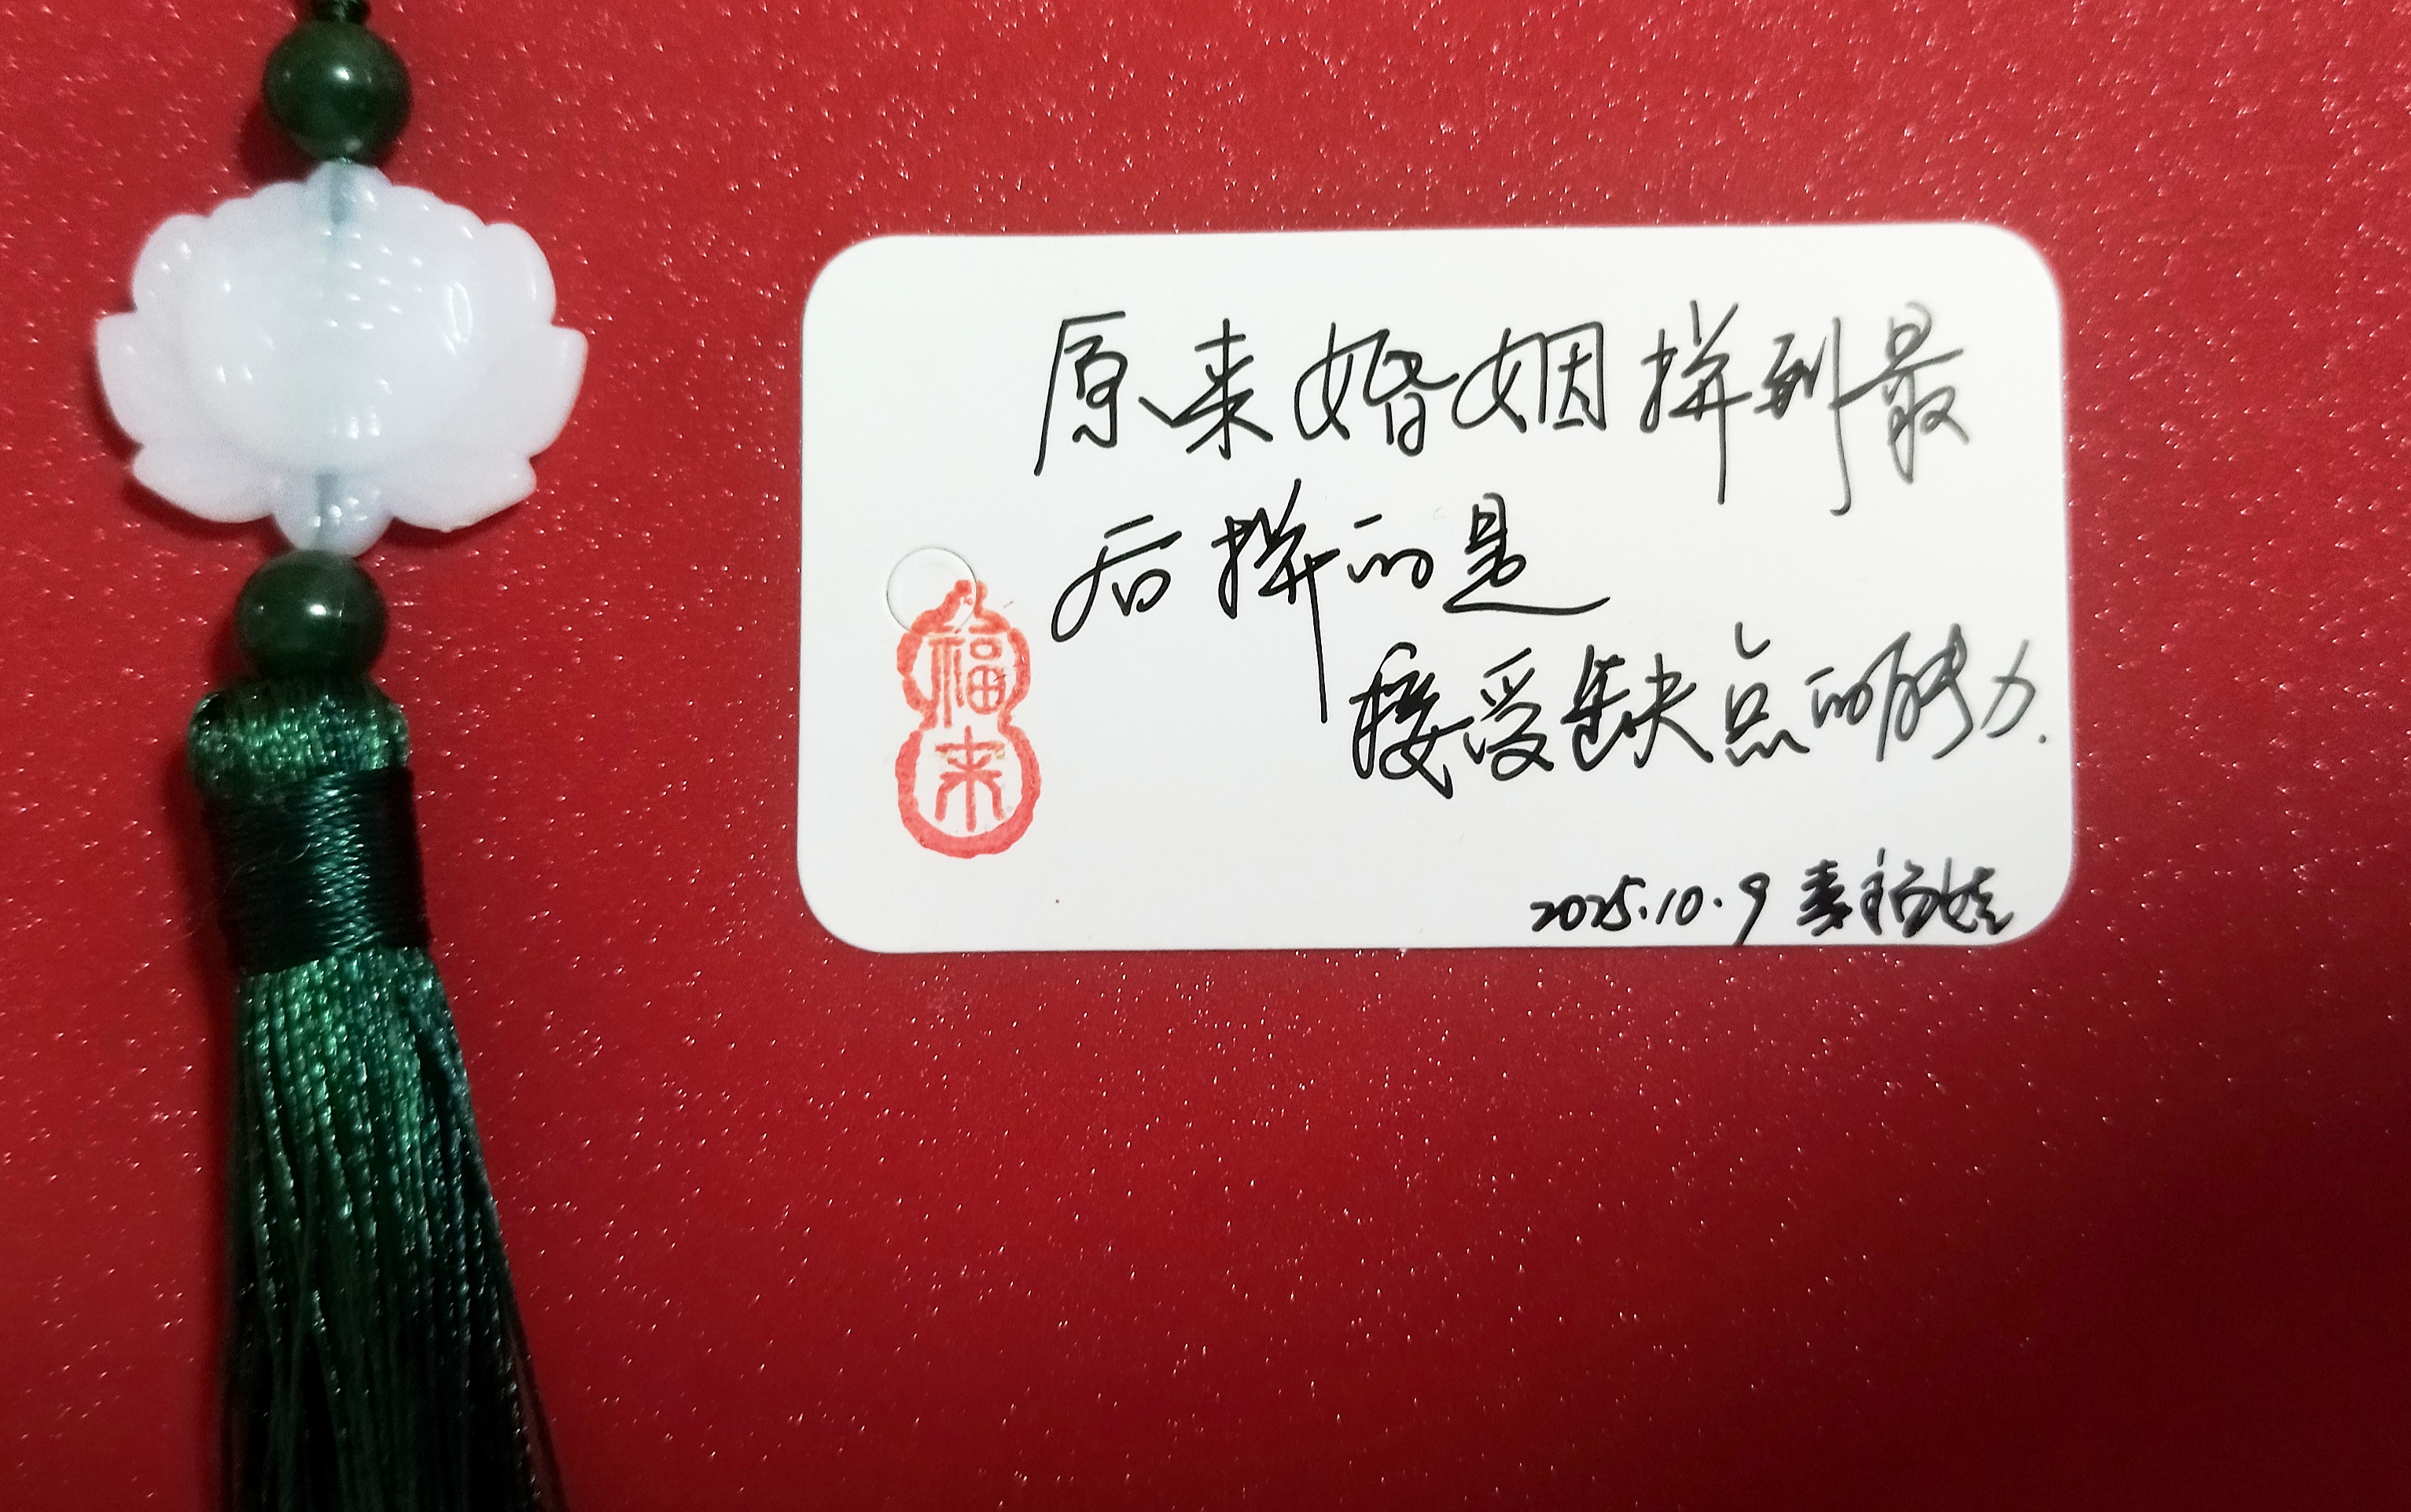 原来婚姻拼到最
后拼的是
接受缺点的能力.
福来
2025.10.9